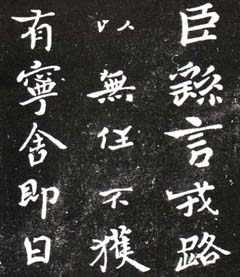 臣繇言戎路
以無任不獲
有寧舍即日